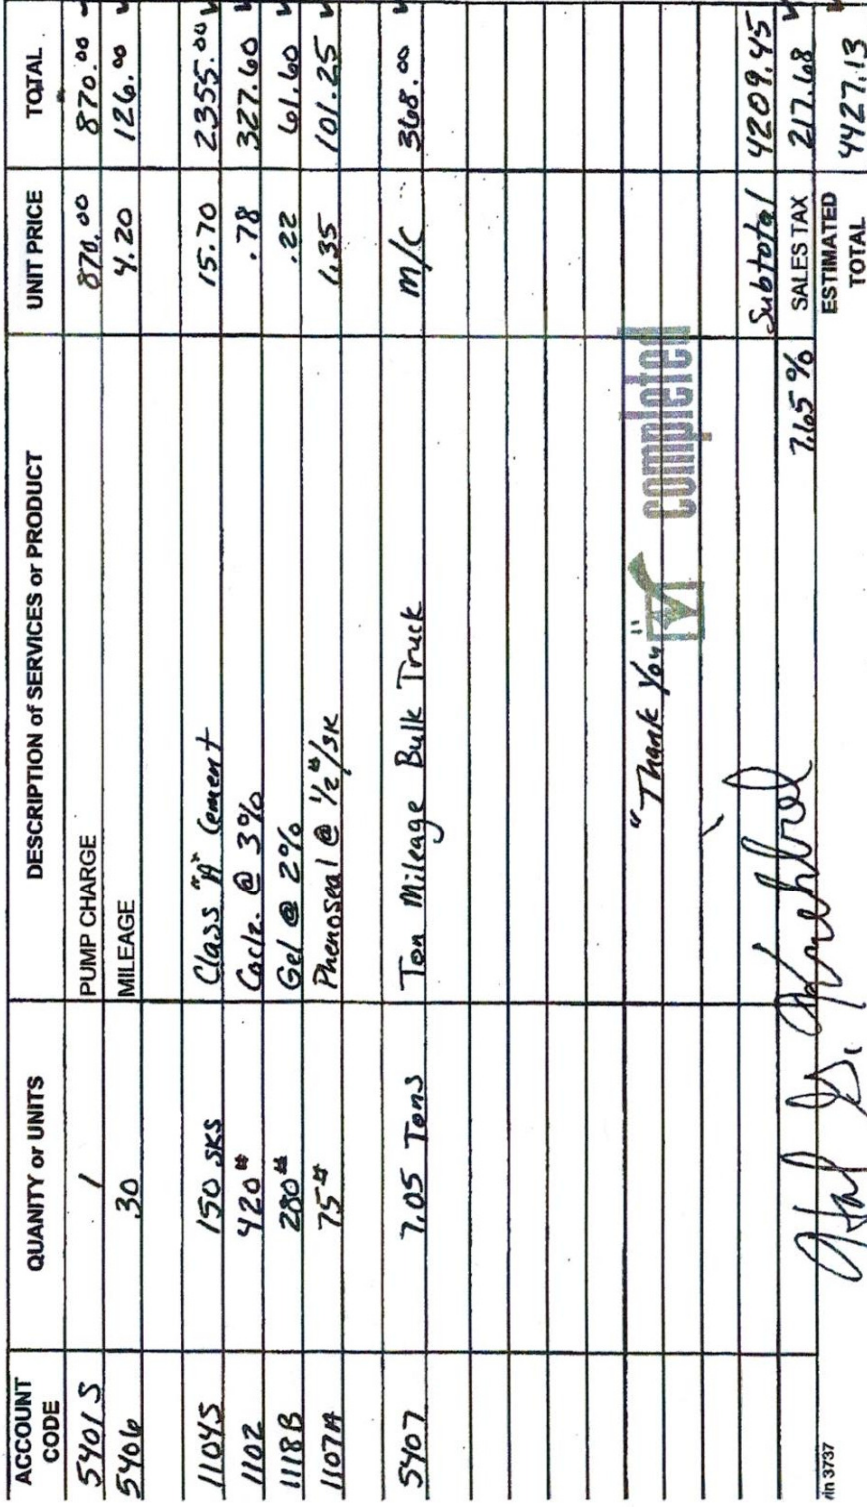 ACCOUNT CODE QUANITY or UNITS DESCRIPTION of SERVICES or PRODUCT UNIT PRICE TOTAL
5401S 1 PUMP CHARGE 870.00 870.00
5406 30 MILEAGE 4.20 126.00
1104S 150 SKS Class "A" Cement 15.70 2355.00
1102 420# Caclz. @ 3% .78 327.60
1118B 280# Gel @ 2% .22 61.60
1107A 75# Phenoseal @ 1/2#/SK 1.35 101.25
5407 7.05 Tons Ton Mileage Bulk Truck M/C 368.00
"Thank You"
completed
Subtotal 4209.45
7.65% SALES TAX 217.68
ESTIMATED TOTAL 4427.13
3737